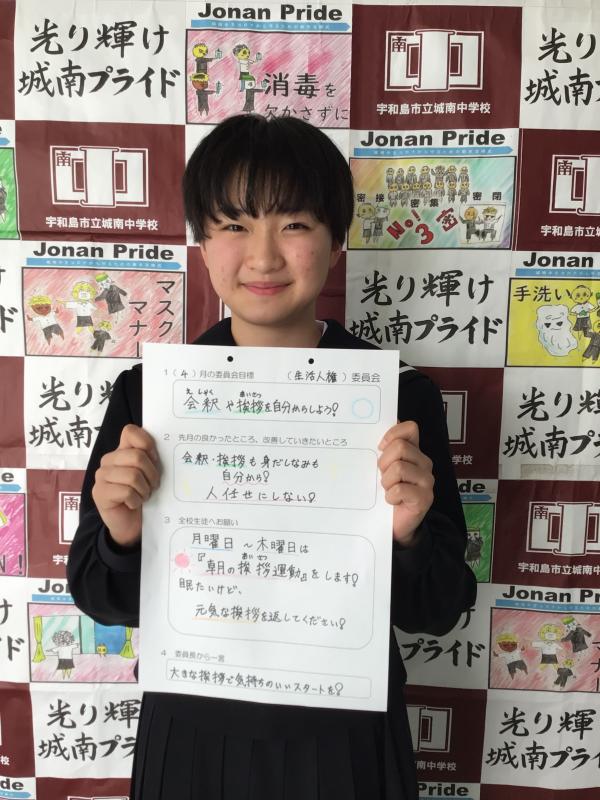 光り輝け
城南プライド
Jonan Pride
消毒を
欠かさずに
南中
宇和島市立城南中学校
Jonan Pride
密接
密集
密閉
No!
3密
南中
宇和島市立城南中学校
Jonan Pride
マスク
マナー
光り輝け
城南プライド
手洗い
1（4）月の委員会目標　（生活人権）委員会
えしゃく　あいさつ
会釈や挨拶を自分からしよう!
2　先月の良かったところ、改善していきたいところ
会釈・挨拶も身だしなみも
自分から!
人任せにしない!
3　全校生徒へお願い
月曜日～木曜日は
あいさつ
『朝の挨拶運動』をします!
眠たいけど、
元気な挨拶を返してください!
4　委員長から一言
大きな挨拶で気持ちのいいスタートを!
宇和島市立城南中学校
光り輝け
Jonan Pride
光り輝け
城南プライド
光り輝け
城南プライド
Jonan Pride